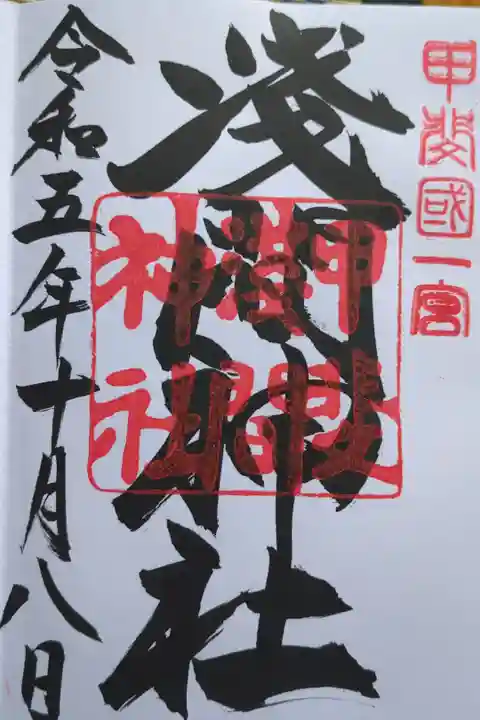 甲斐國一宮
淺間神社
淺間
神社
令和五年十月八日